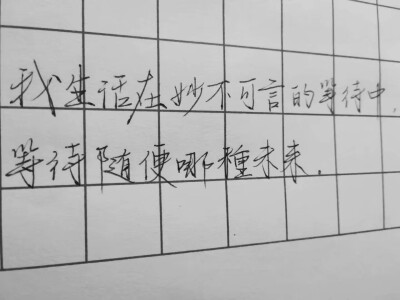 我生活在妙不可言的等待中,
等待随便哪種未来.